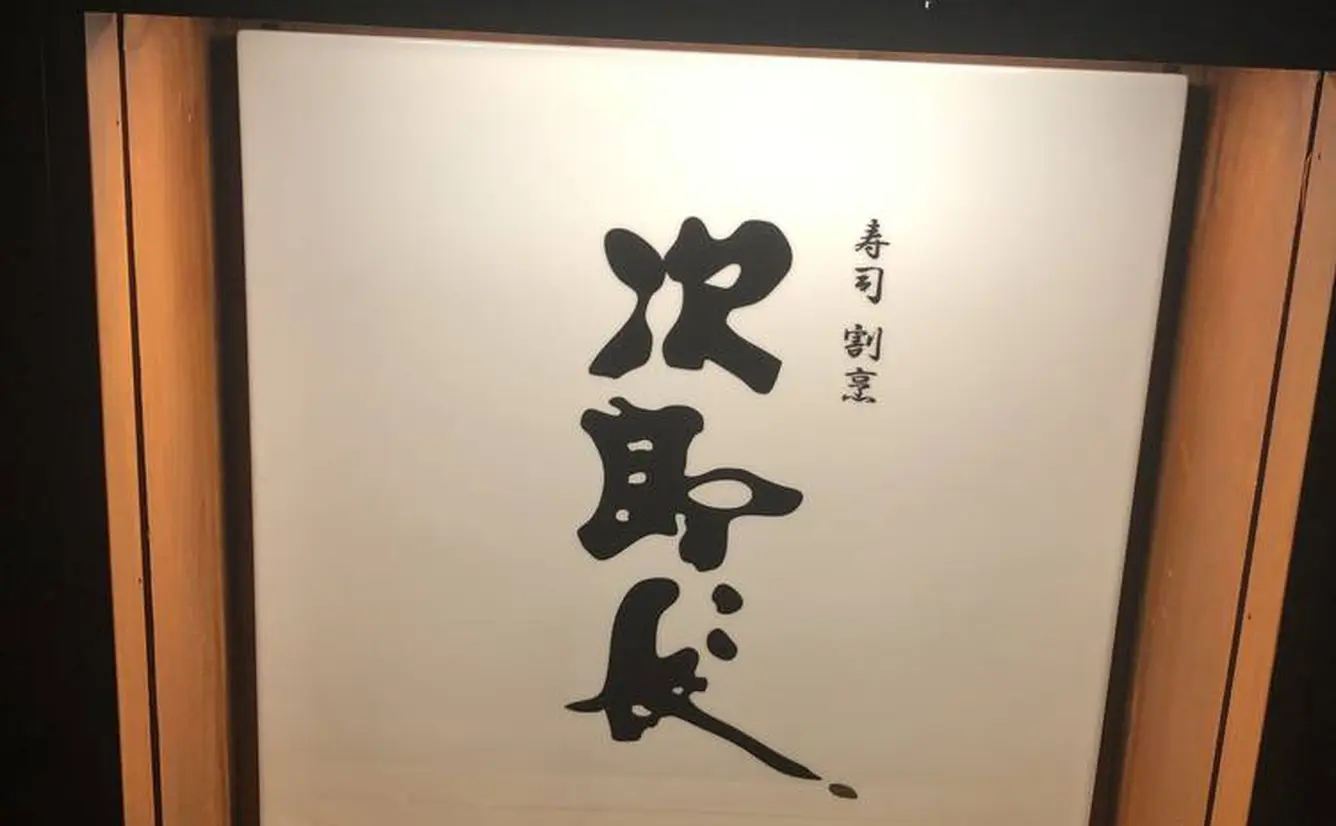 寿司 割烹
次郎長